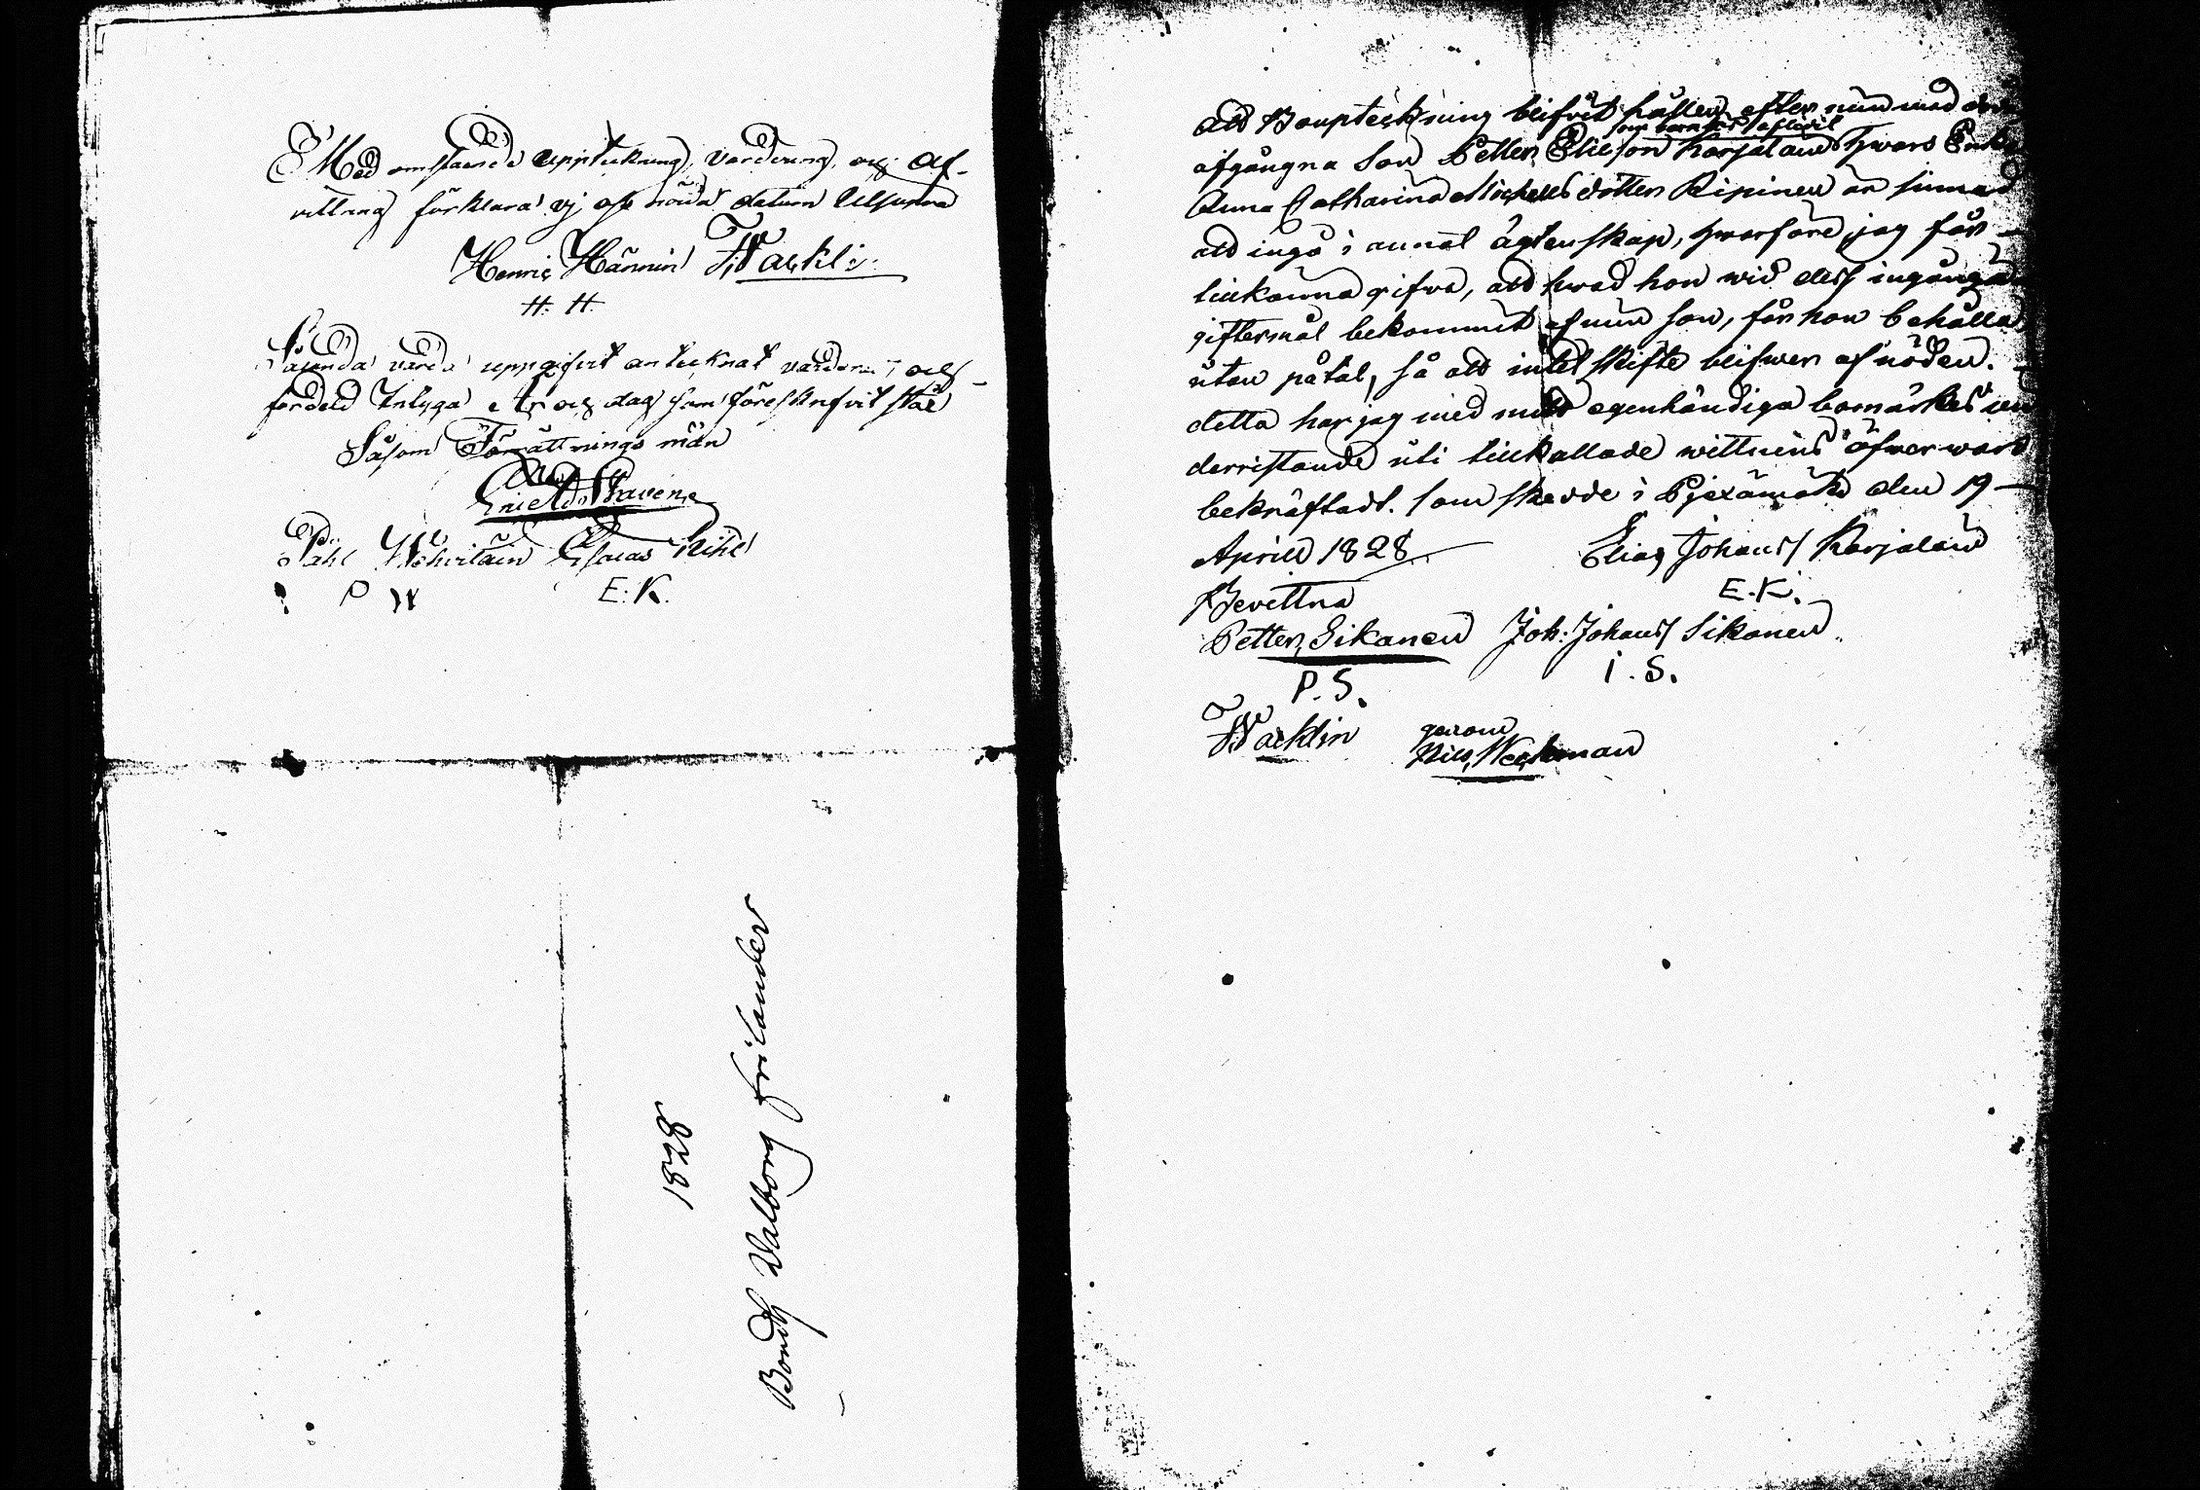 Med omstående uppteckning, värdering, och af-
vittring förklara vi oss nöjda datum utsupra
Henric Hännin TWackli
H. H.
Sålunda vara uppgifvit antecknat värderat och
fördeld intyga år och dag som föreskrifvit står
Såsom Förrättnings män
Pähl Esaias Kihl
P W E. K.
1828
Bond: Walborg Frilander
Att Bouptekning blifvit hållen efter min med döden
som barnlös aflidit
afgångna Son Petter Eliesson Karjalain hwars Enka
Anna Catharina Michelsdotter Ripinen är sinnad
att ingå i annat ägtenskap, hwarföre jag får
tillkänna gifva, att hwad hon wid dess ingångna
giftermål bekommit af min son, får hon behålla
utan påtal, så att intet skifte blifwer af nöden.
detta har jag med mitt egenhändiga bomärkes
derristande uti tillkallade wittnens öfverwaro
bekräftadt. som skedde i Pjexämäki den 19
Aprill 1828. Elias Johanss Karjalain
E. K.
Bevittna
Petter Sikanen Joh: Johanss Sikanen
P. S. I. S.
TWacklin genom
Nils Weckman